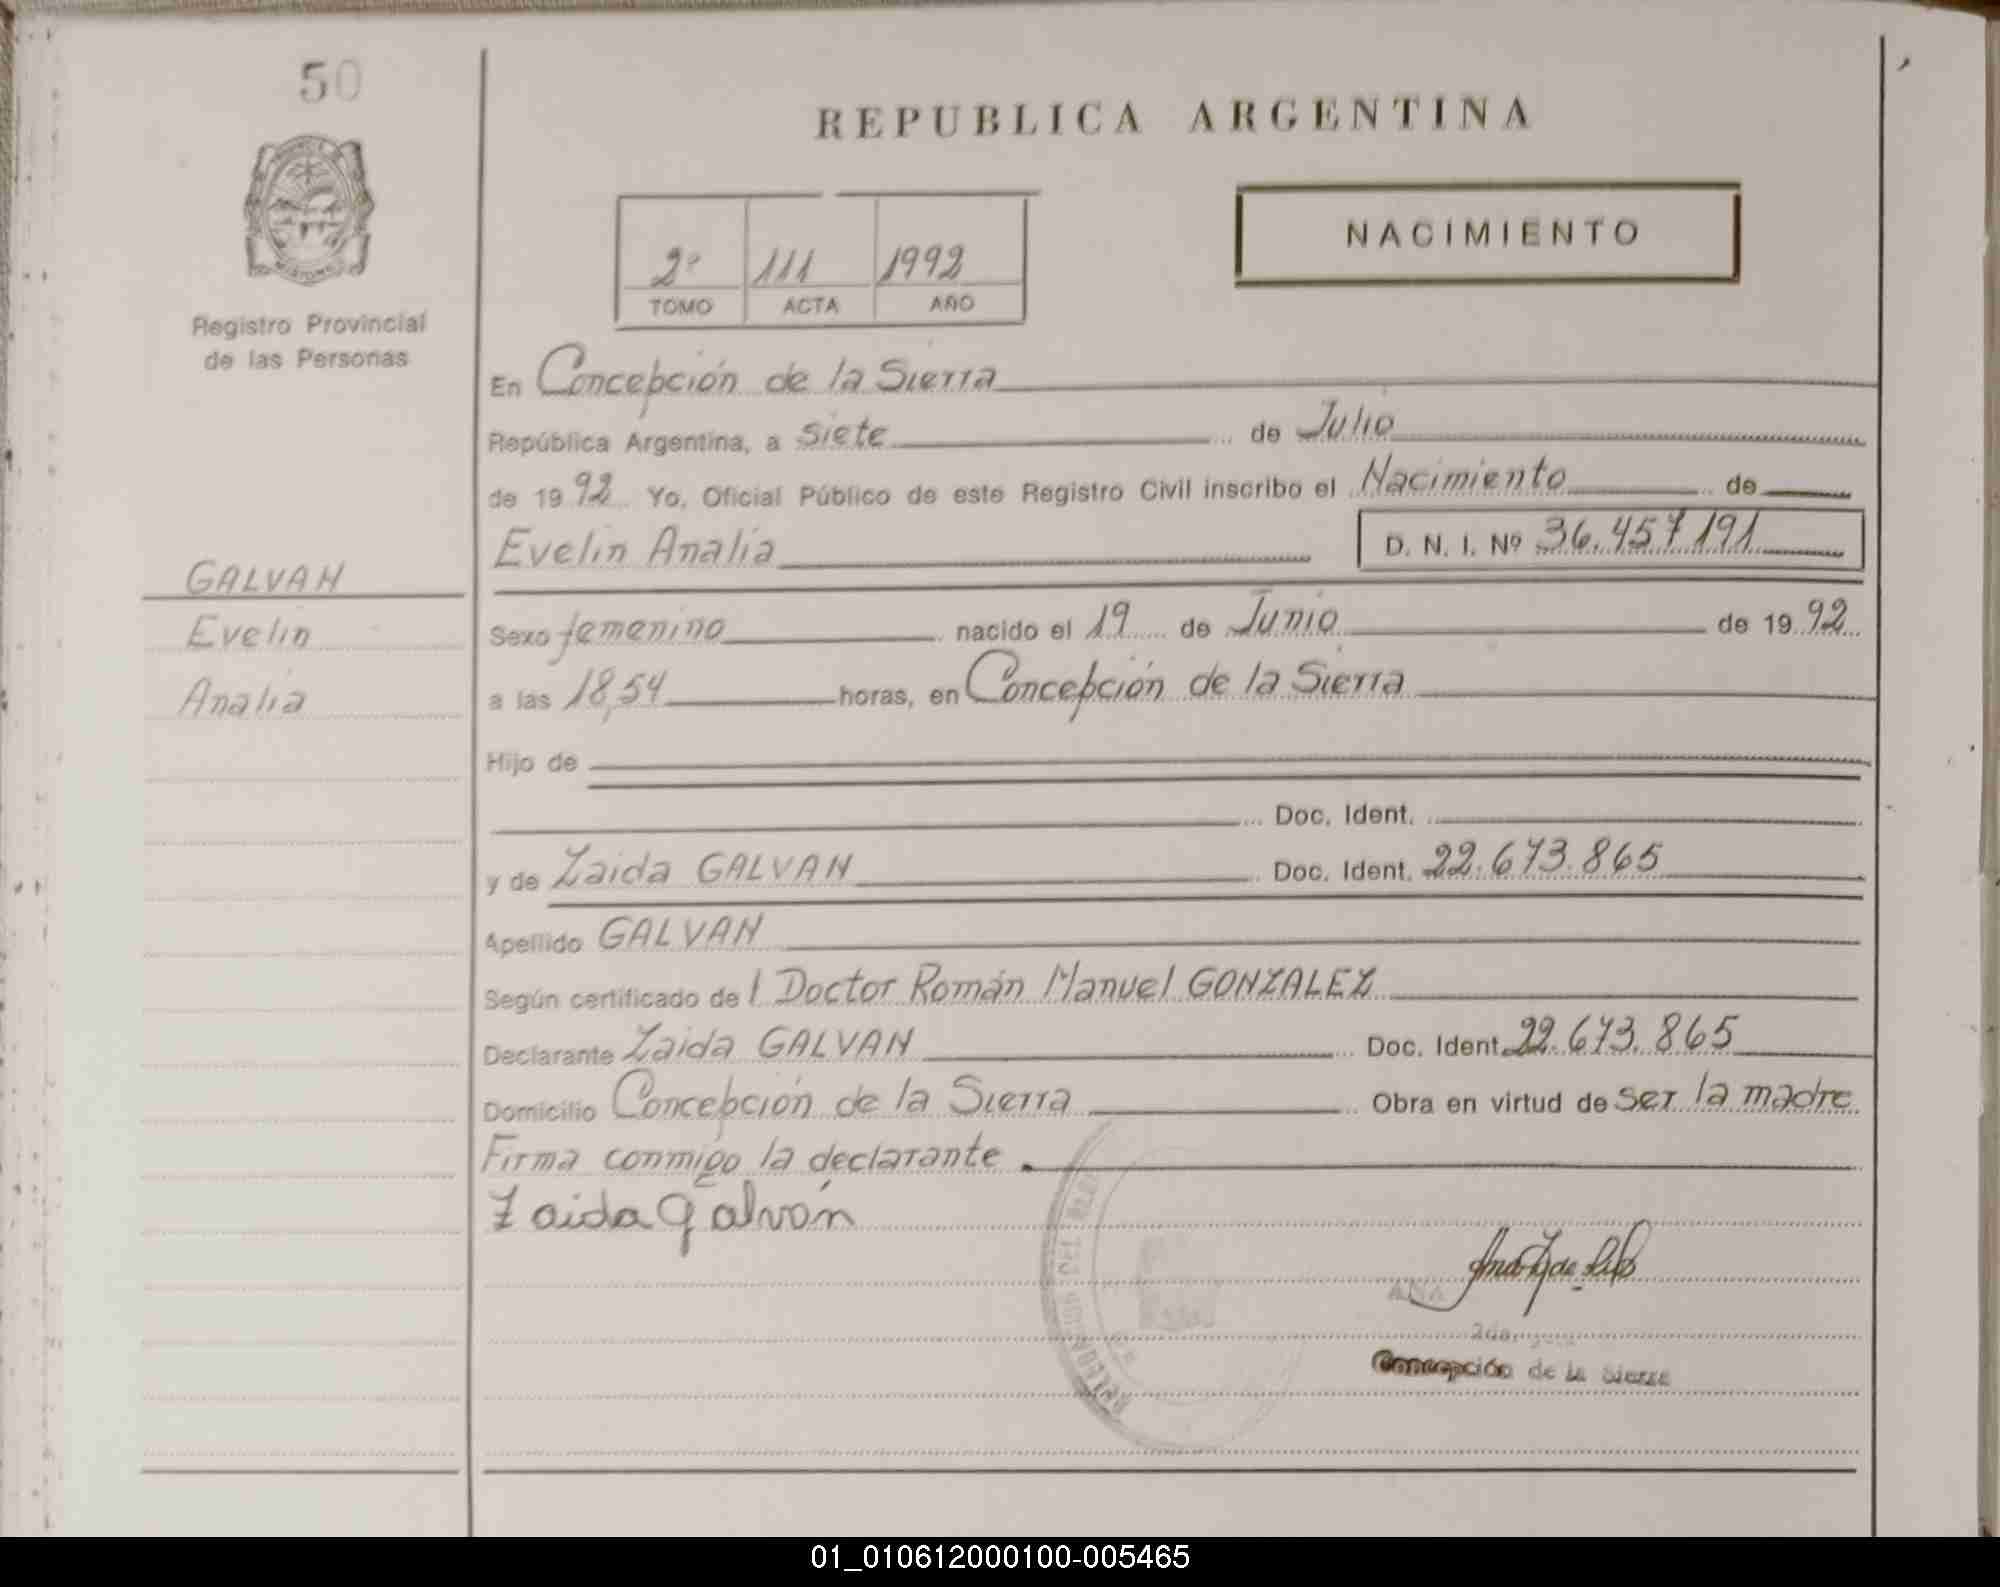 50
REPUBLICA ARGENTINA
NACIMIENTO
2º 111 1992
TOMO ACTA AÑO
Registro Provincial
de las Personas
En Concepción de la Sierra
República Argentina, a siete de Julio
de 1992 Yo, Oficial Público de este Registro Civil inscribo el Nacimiento de
Evelin Analia D. N. I. Nº 36.457191
GALVAN
Evelin
Analia
Sexo femenino nacido el 19 de Junio de 1992
a las 18,54 horas, en Concepción de la Sierra
Hijo de
Doc. Ident.
y de Zaida GALVAN Doc. Ident. 22.673.865
Apellido GALVAN
Según certificado del Doctor Román Manuel GONZALEZ
Declarante Zaida GALVAN Doc. Ident. 22.673.865
Domicilio Concepción de la Sierra Obra en virtud de ser la madre
Firma conmigo la declarante.
Zaida Galván
ANA
Concepción de la Sierra
01_010612000100-005465